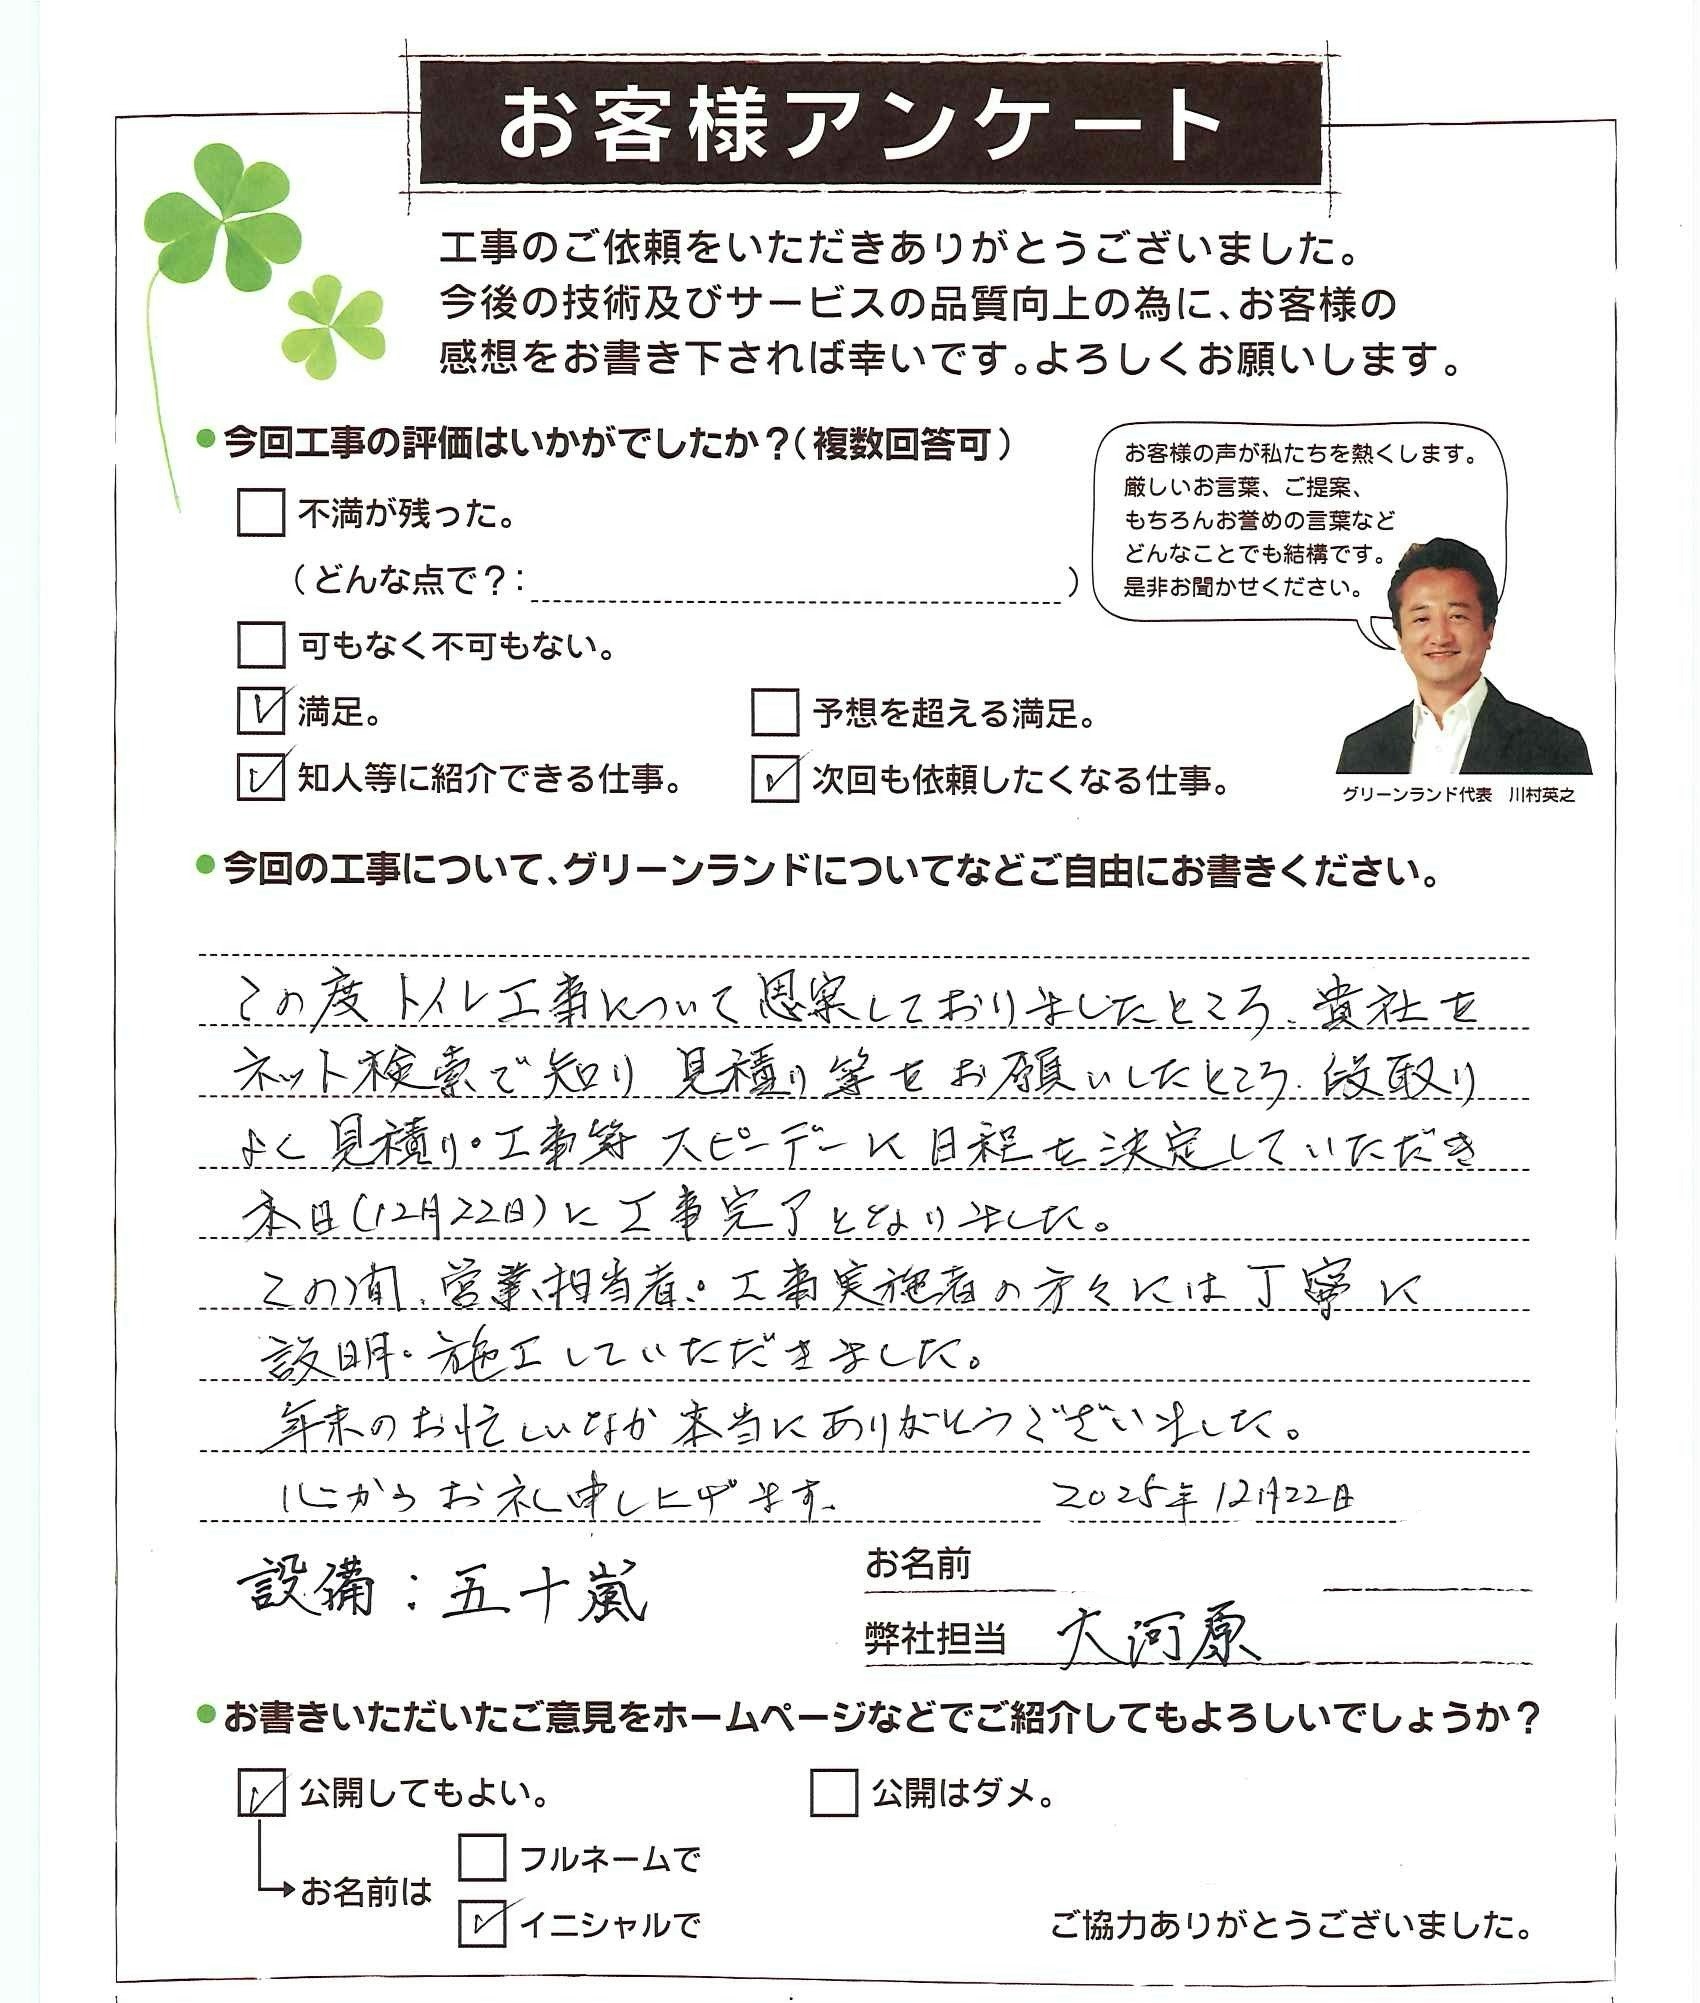 お客様アンケート
工事のご依頼をいただきありがとうございました。
今後の技術及びサービスの品質向上の為に、お客様の
感想をお書き下されば幸いです。よろしくお願いします。
●今回工事の評価はいかがでしたか?(複数回答可)
不満が残った。
(どんな点で?: )
可もなく不可もない。
満足。
予想を超える満足。
知人等に紹介できる仕事。
次回も依頼したくなる仕事。
お客様の声が私たちを熱くします。
厳しいお言葉、ご提案、
もちろんお誉めの言葉など
どんなことでも結構です。
是非お聞かせください。
グリーンランド代表 川村英之
●今回の工事について、グリーンランドについてなどご自由にお書きください。
この度トイレ工事について思案しておりましたところ、貴社を
ネット検索で知り見積り等をお願いしたところ、段取り
よく見積り・工事等スピーデーに日程を決定していただき
本日(12月22日)に工事完了となりました。
この間、営業担当者・工事実施者の方々には丁寧に
説明・施工していただきました。
年末のお忙しいなか本当にありがとうございました。
心からお礼申し上げます。 2025年12月22日
設備:五十嵐
お名前
弊社担当 大河原
●お書きいただいたご意見をホームページなどでご紹介してもよろしいでしょうか?
公開してもよい。
公開はダメ。
お名前は
フルネームで
イニシャルで
ご協力ありがとうございました。